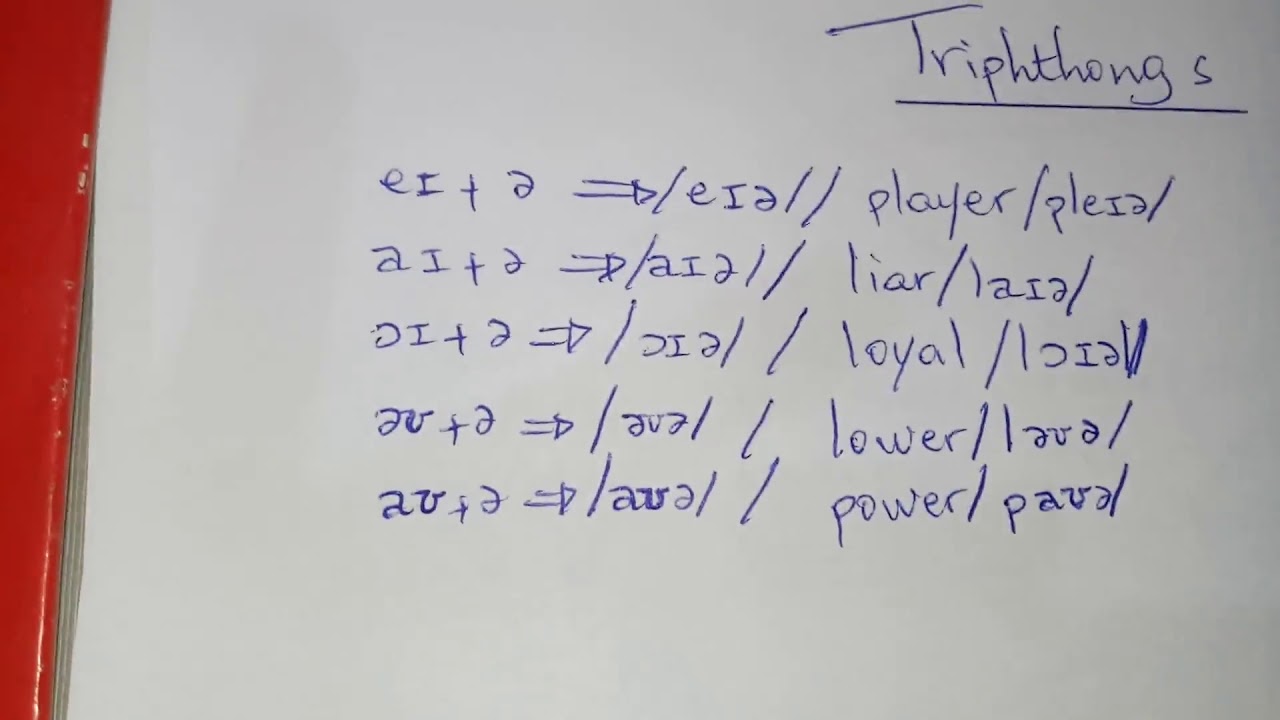 Triphthongs
eɪ + ə ⇒ /eɪə/ / player /pleɪə/
aɪ + ə ⇒ /aɪə/ / liar /laɪə/
ɔɪ + ə ⇒ /ɔɪə/ / loyal /lɔɪəl/
əʊ + ə ⇒ /əʊə/ / lower /ləʊə/
aʊ + ə ⇒ /aʊə/ / power /paʊə/